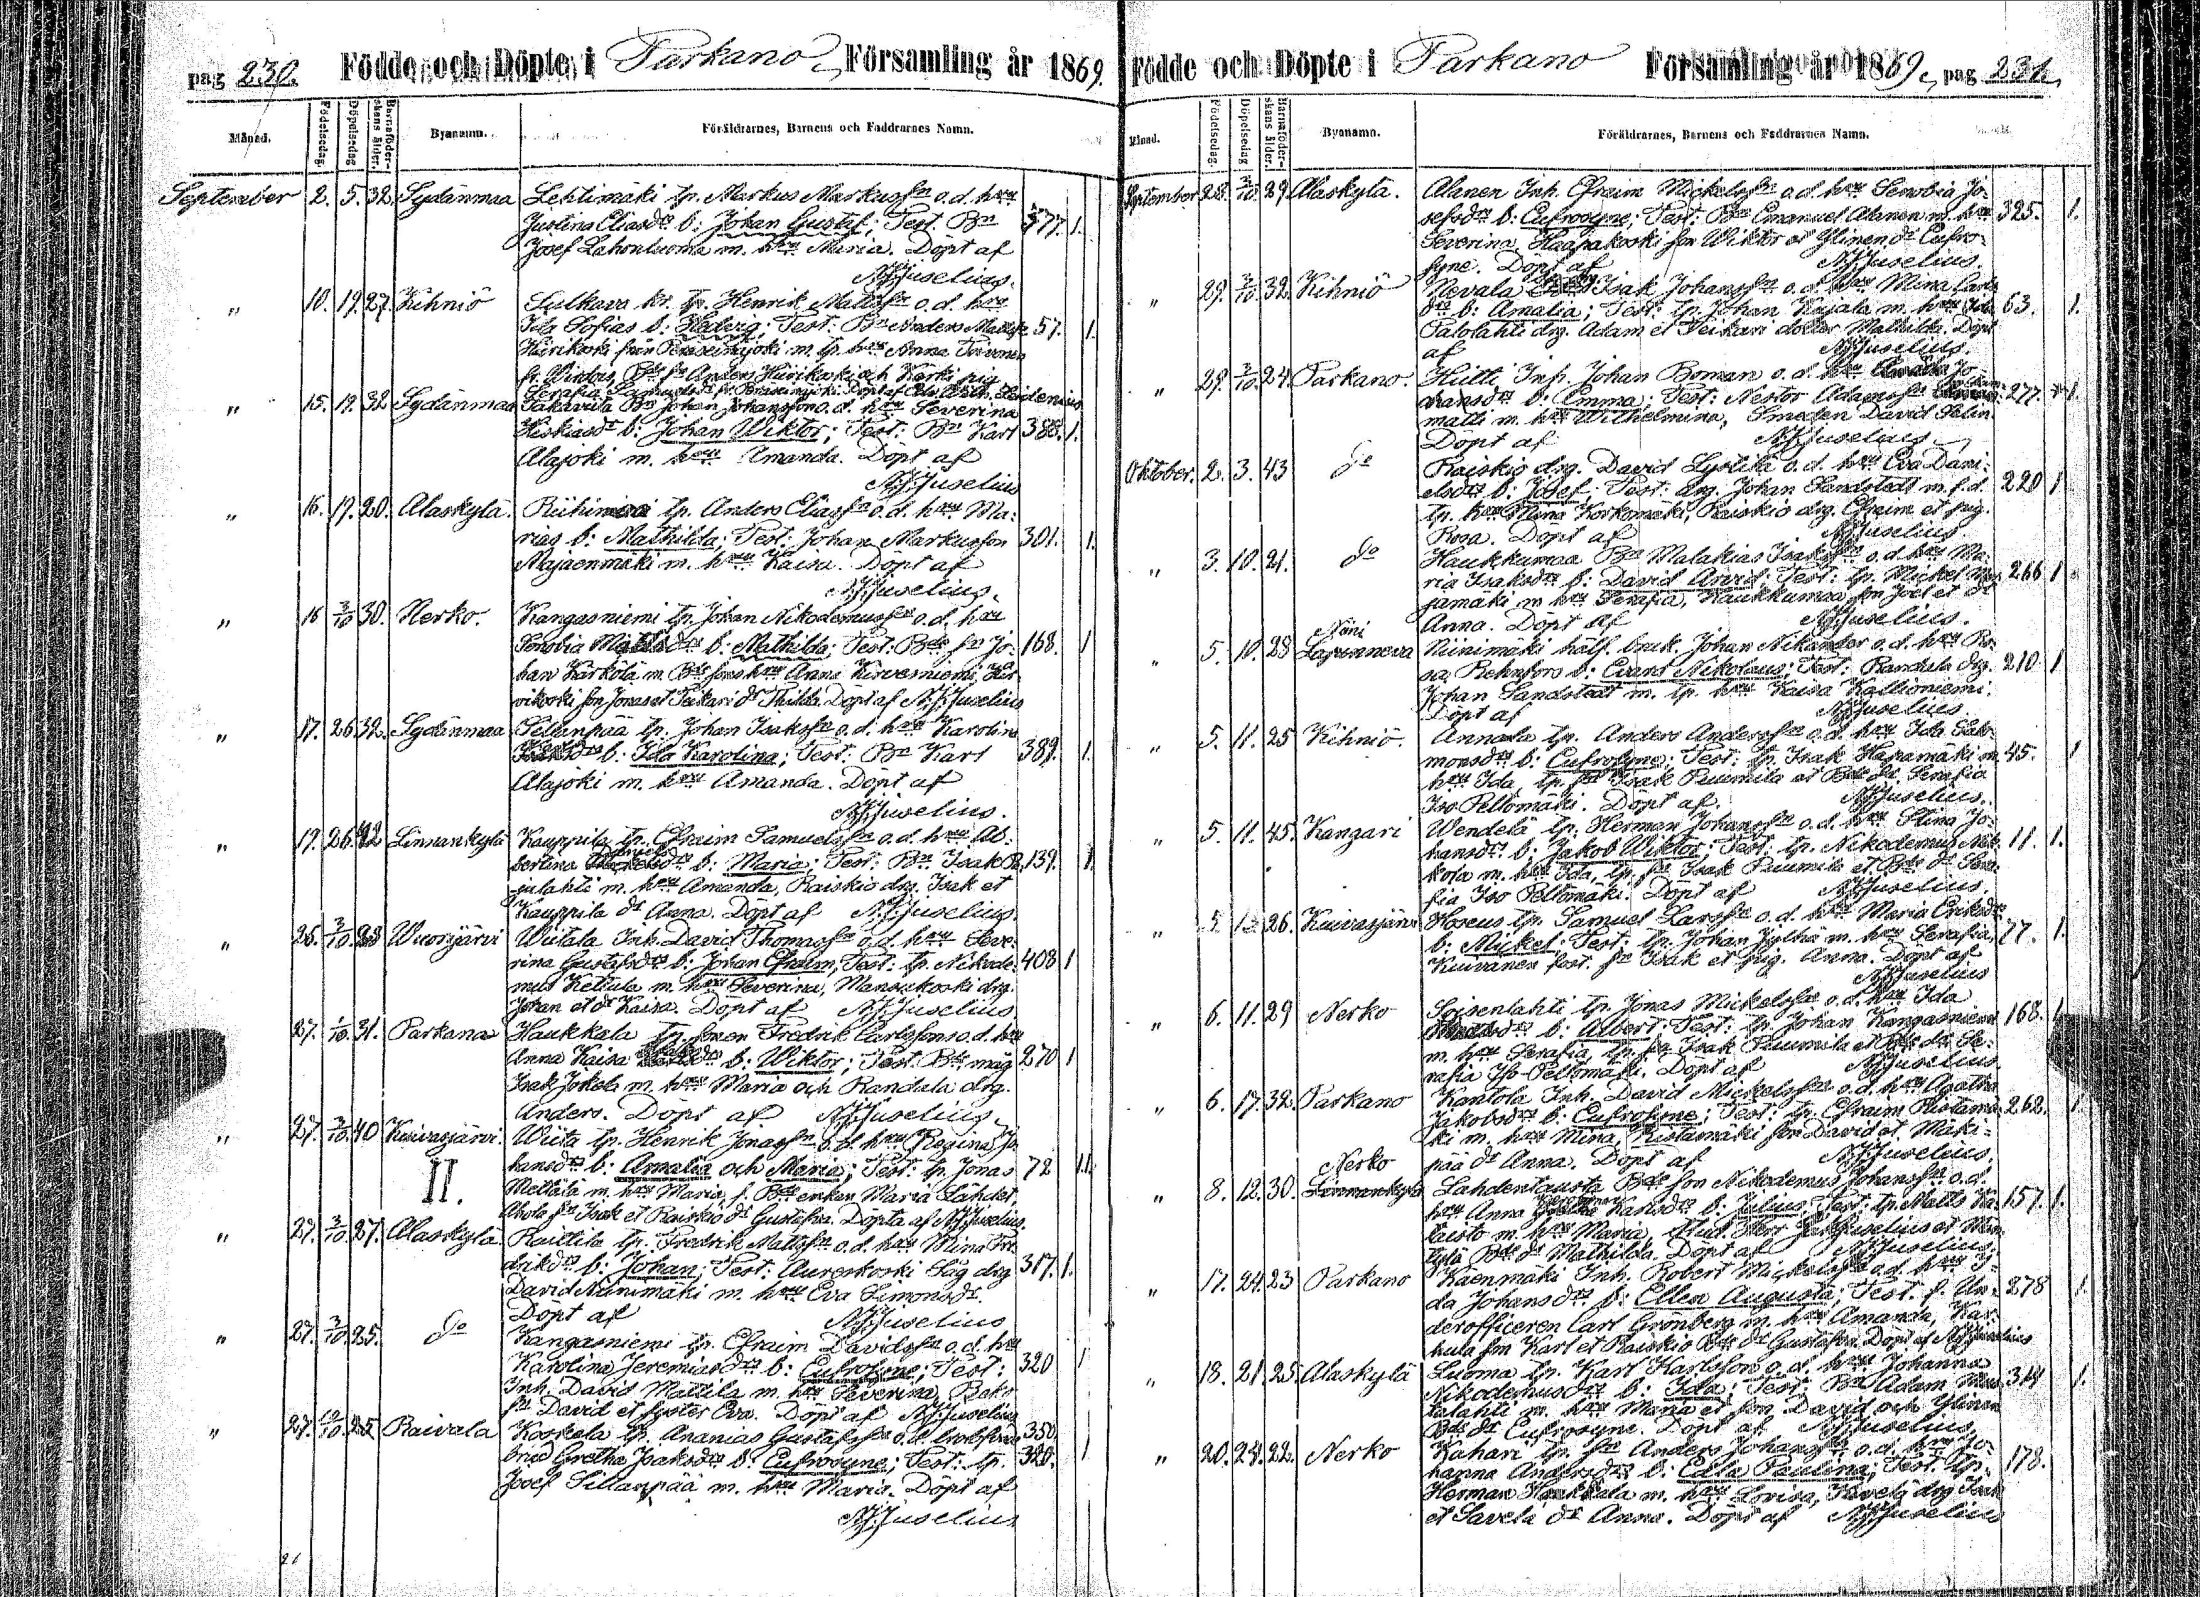 pag 230. Födde och Döpte i Parkano Församling år 1869.
Månad. Födelsedag. Döpelsedag Barnaföderskans ålder. Byanamn. Föräldrarnes, Barnens och Faddrarnes Namn.
September 2. 5. 32. Sydänmaa Lehtimäki tp. Markus Markussn o.d. hru
Justina Eliasdr b: Johan Gustaf; Test. Bn 377. 1.
Josef Lahonluoma m. hru Maria. Döpt af
N.J.Juselius.
" 10. 19. 27. Kihniö Sulkava tp. Henrik Mattssn o.d. hru
Ida Sofias b: Hedvig; Test: Bn Anders Mattss 57. 1.
från m. tp. hru Anna
fr. Virdois, Anders och pig
Serafia
" 15. 19. 32 Sydänmaa Bn Johan Johansson o.d. hru Severina
Hiskiasdr b: Johan Wiktor; Test: Bn Karl 388. 1.
Alajoki m. hru Amanda. Döpt af
N.J.Juselius
" 16. 19. 20. Alaskylä. tp. Anders Eliassn o.d. hru Ma-
rias b: Mathilda; Test: Johan Markusson 301. 1.
Majaenmäki m. hru Kaisa. Döpt af
N.J.Juselius.
" 16 3/10 30. Nerko. Kangasniemi tp. Johan Nikodemussn o.d. hru
Senobia b: Mathilda; Test: Bde sn Jo- 168. 1
han Kärkölä m Anna Kirvesniemi,
son Jonas et Peikari dr Thilda. Döpt af N.J.Juselius
" 17. 26. 32. Sydänmaa Sillanpää tp. Johan Isakssn o.d. hru Karolina
b: Ida Karolina; Test: Bn Karl 389. 1.
Alajoki m. hru Amanda. Döpt af
N.J.Juselius.
" 19. 26. 42 Linnankylä Kauppila tp. Efraim Samuelssn o.d. hru Al-
bertina b: Maria; Test: Bn Isak 139. 1.
m. hru Amanda, Raiskio drg. Isak et
Kauppila dr Anna. Döpt af N.J.Juselius.
" 26. 3/10. 28 Wuorijärvi Wiitala Inh. David Thomassn o.d. hru Seve-
rina Gustafsdr b: Johan Efraim; Test: tp. Nikode- 408 1
mus Ketola m. hru Severina, Mansikoski drg.
Johan et dr Kaisa. Döpt af N.J.Juselius.
27. 1/10. 31. Parkano Haukkala Fredrik Carlsson o.d. hru
Anna Kaisa b: Wiktor; Test. Bde måg 270 1
Isak Jokela m. hru Maria och Randala drg.
Anders. Döpt af N.J.Juselius.
" 27. 3/10. 40 Kuivasjärvi. Wiita tp. Henrik Jonassn o.d. hru Regina Jo-
II. hansdr b: Amalia och Maria; Test: tp. Jonas 72 1.1.
Mellälä m. hru Maria, f. Bde enkan Maria Lähdet,
Ahola sn Isak et Raiskio dr Gustafva. Döpta af N.J.Juselius.
" 27. 3/10. 27. Alaskylä tp. Fredrik Mattssn o.d. hru Mina Fre-
driksdr b: Johan; Test: Aureskoski Såg drg 317. 1.
David Niinimäki m. hru Eva Simonsdr.
Döpt af N.J.Juselius
" 27. 3/10. 25. do Kangasniemi tp. Efraim Davidssn o.d. hru
Karolina Jeremiasdr b: Eufrosyne; Test: 320 1
Inh. David Mattila m. hru Severina,
sn David et syster Eva. Döpt af N.J.Juselius
" 27. 10/10 25 Raivala Koskela tp. Ananias Gustafssn o.d. trolofvade 350.
brud Gretha Isaksdr b: Eufrosyne; Test: tp. 320. 1
Josef Sillanpää m. hru Maria. Döpt af
N.J.Juselius
Födde och Döpte i Parkano Församling år 1869, pag 231.
Månad. Födelsedag. Döpelsedag Barnaföderskans ålder. Byanamn. Föräldrarnes, Barnens och Faddrarnes Namn.
September 28. 3/10. 29 Alaskylä. Alanen Inh. Efraim Mickelssn o.d. hru Senobia Jo-
sefsdr b: Eufrosyne; Test: Bn Emanuel Alanen m. hru 325. 1.
Severina, Haapakoski son Wiktor et Ylinen dr Eufro-
syne. Döpt af N.J.Juselius.
" 29. 3/10. 32. Kihniö Nevala Isak Johanssn o.d. hru Mina Carls
dr b: Amalia; Test: tp. Johan Kajala m. hru Ida 63. 1.
Palolahti drg. Adam et Peikari dotter Mathilda. Döpt
af N.J.Juselius.
" 29. 3/10. 24. Parkano. Hiitti Inh. Johan Boman o.d. hru Jo-
hansdr b: Emma; Test: Nestor Adamssn 277. 1.
matti m. hru Wilhelmina, Smeden David Salin
Döpt af N.J.Juselius.
Oktober. 2. 3. 43 do Raiskio drg. David Lystilä o.d. hru Eva Dani-
elsdr b: Josef; Test: drg. Johan Sandstedt m. f.d. 220 1.
tp. hru Mina Korkomäki, Raiskio drg. Efraim et pig.
Rosa. Döpt af N.J.Juselius.
" 3. 10. 21. do Haukkumaa Bn Malakias Isakssn o.d. hru Ma-
ria Isaksdr b: David Arvid; Test: tp. Mickel 266 1
jämäki m hru Serafia, Haukkumaa sn Joel et dr
Anna. Döpt af N.J.Juselius.
Näni
" 5. 10. 28 Lapinneva Niinimäki hälf. bruk. Johan Nikander o.d. hru Ro-
sa Rehnfors b: Evans Nikolaus; Test: Randala drg. 210 1
Johan Sandstedt m. tp. hru Kaisa Kallioniemi.
Döpt af N.J.Juselius.
" 5. 11. 25 Kihniö. Annala tp. Anders Anderssn o.d. hru Ida Salo-
monsdr b: Eufrosyne; Test: tp. Isak Haapamäki m. 45. 1
hru Ida, tp. sn Isak Puumila et Bde dr Serafia
Iso Peltomäki. Döpt af. N.J.Juselius.
" 5. 11. 45. Kangari Wendelä tp. Herman Johanssn o.d. hru Stina Jo-
hansdr b: Jakob Wiktor; Test: tp. Nikodemus 11. 1.
kola m. hru Ida, tp. sn Isak Puumila et Bde dr Sera-
fia Iso Peltomäki. Döpt af N.J.Juselius.
" 5. 26. Kuivasjärvi Hoseus tp. Samuel Larssn o.d. hru Maria Eriksdr
b: Mickel; Test: tp. Johan Jylhä m. hru Serafia, 77. 1.
Kuivanen fost. sn Isak et pig. Anna. Döpt af
N.J.Juselius
" 6. 11. 29 Nerko Soisenlahti tp. Jonas Mickelssn o.d. hru Ida
b: Albert; Test: tp. Johan Kangasniemi 168. 1.
m. hru Serafia, tp. sn Isak Puumila et Bde dr Se-
rafia Iso-Peltomäki. Döpt af N.J.Juselius.
" 6. 17. 32. Parkano Kantola Inh. David Mickelssn o.d. hru Agatha
Jakobsdr b: Eufrosyne; Test: tp. Efraim Ristamä- 262. 1.
ki m. hru Mina, Ristamäki son David et Mäki-
pää dr Anna. Döpt af N.J.Juselius.
Nerko
" 8. 12. 30. Linnankylä Lahdentausta Bde son Nikodemus Johanssn o.d.
hru Anna b: Julius; Test: tp. Matts Ka- 157. 1.
laisto m. hru Maria, Stud. Juselius et
Bde dr Mathilda. Döpt af N.J.Juselius.
" 17. 24. 23 Parkano Käenmäki Inh. Robert Mickelssn o.d. hru
da Johansdr b: Ellen Augusta; Test. f. Un- 278 1.
derofficeren Carl Grönberg m. hru Amanda,
sn Karl et Raiskio Bde dr Gustafva. Döpt af N.J.Juselius
" 18. 21. 25. Alaskylä Luoma tp. Karl Karlsson o.d. hru Johanna
Nikodemusdr b: Ida; Test: Bn Adam 314 1.
talahti m. hru Maria et son David och Ylinen
Bde dr Eufrosyne. Döpt af N.J.Juselius.
" 20. 24. 22. Nerko Kahari tp. sn Anders Johanssn o.d. hru Jo-
hanna Andersdr b: Edla Paulina; Test: tp. 178.
Herman Haukkala m. hru Lovisa, drg Isak
et Savela dr Anna. Döpt af N.J.Juselius